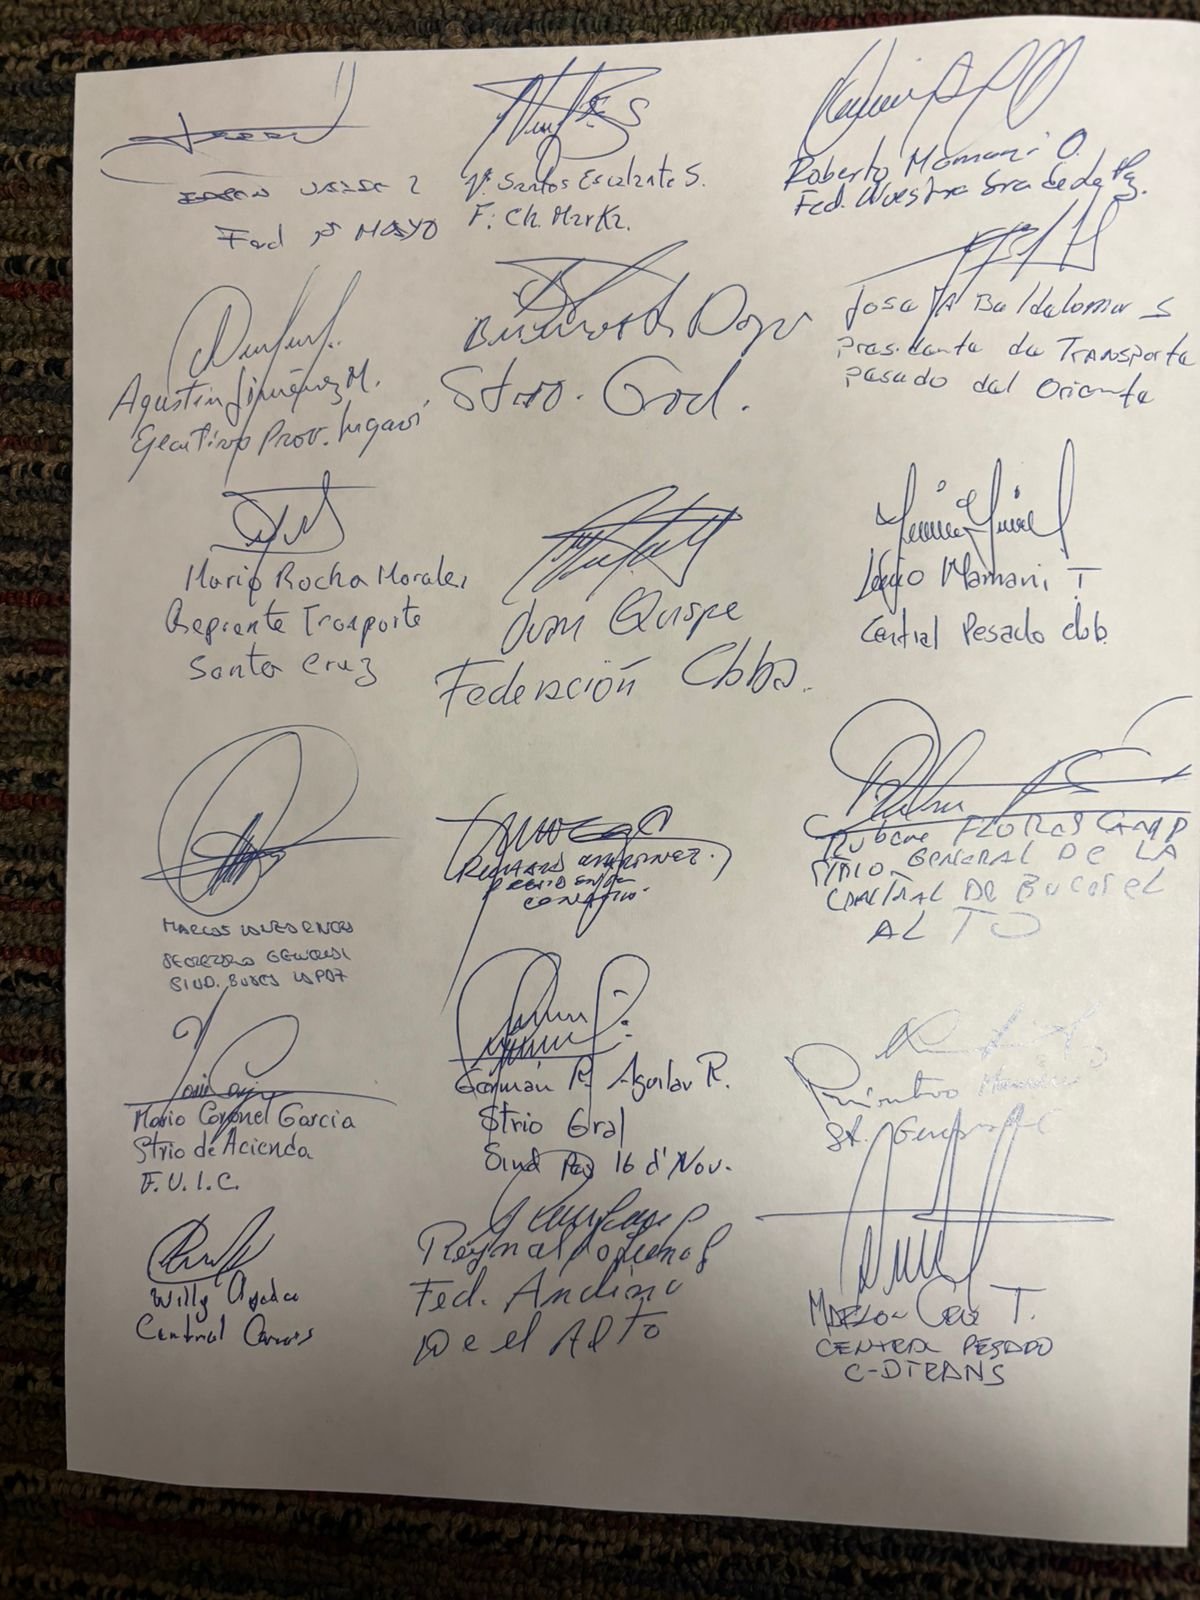 Fed 1º MAYO
V. Santos Escalante S.
F. Ch. Marka.
Roberto Mamani O.
Fed. Nuestra Sra de la Pz.
Agustin Jiménez M.
Ejecutivo Prov. Ingavi
Strio. Gral.
Jose A Baldelomar S
Presidente de TRANSporte
pesado del Oriente
Mario Rocha Morales
Transporte
Santa Cruz
Juan Quispe
Federación Cbba.
Mamani T
Central Pesado cbb.
MARCOS
SECRETARIO GENERAL
SIND. BUSES LAPAZ
RICHARD MARTINEZ.
PRESIDENTE
Ruben FLORES
STRIO GENERAL DE LA
CENTRAL DE
ALTO
Mario Coronel Garcia
Strio de Acienda
F.U.I.C.
German R. Aguilar R.
Strio Gral
Sind 16 d' Nov.
Primitivo Mamani
St. General
Willy
Central
Reynaldo
Fed. Andina
De el Alto
MARLON CRUZ T.
CENTRAL PESADO
C-DTRANS